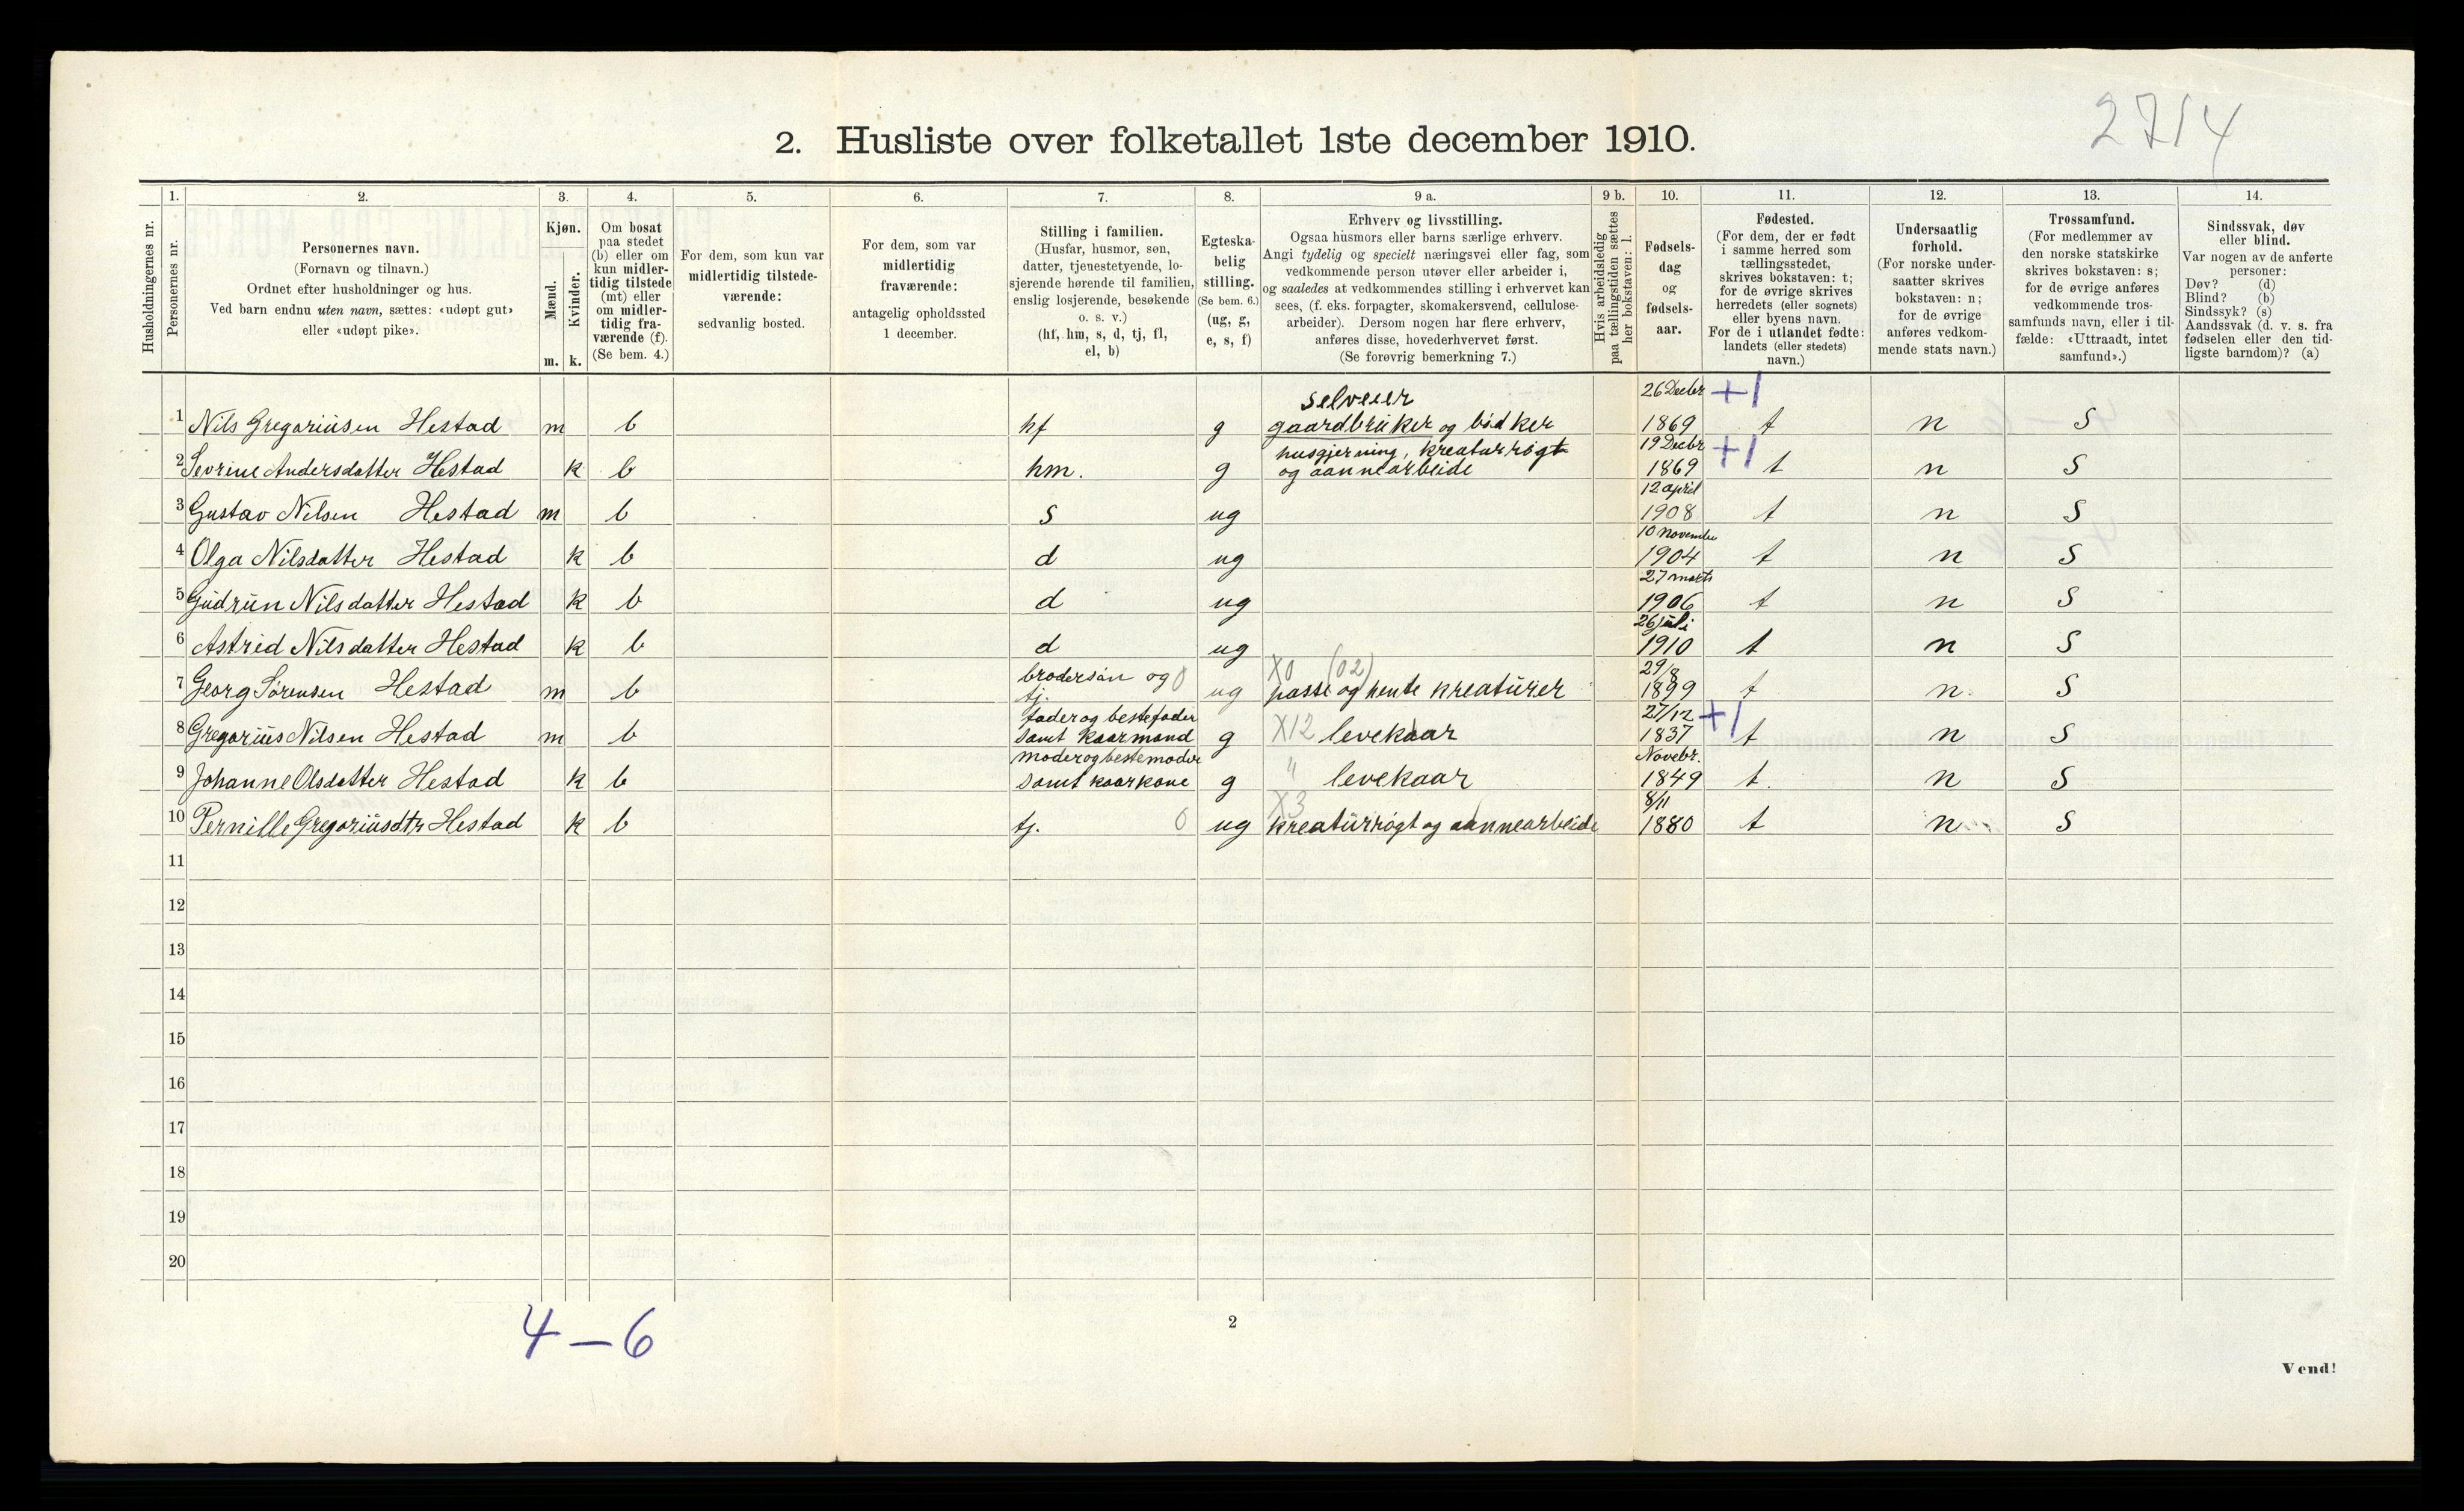 2714
2. Husliste over folketallet 1ste december 1910.
Husholdningernes nr.
1.
Personernes nr.
2.
Personernes navn.
(Fornavn og tilnavn.)
Ordnet efter husholdninger og hus.
Ved barn endnu uten navn, sættes: «udøpt gut»
eller «udøpt pike».
3.
Kjøn.
Mænd.
m.
Kvinder.
k.
4.
Om bosat
paa stedet
(b) eller om
kun midler-
tidig tilstede
(mt) eller
om midler-
tidig fra-
værende (f).
(Se bem. 4.)
5.
For dem, som kun var
midlertidig tilstede-
værende:
sedvanlig bosted.
6.
For dem, som var
midlertidig
fraværende:
antagelig opholdssted
1 december.
7.
Stilling i familien.
(Husfar, husmor, søn,
datter, tjenestetyende, lo-
sjerende hørende til familien,
enslig losjerende, besøkende
o. s. v.)
(hf, hm, s, d, tj, fl,
el, b)
8.
Egteska-
belig
stilling.
(Se bem. 6.)
(ug, g,
e, s, f)
9 a.
Erhverv og livsstilling.
Ogsaa husmors eller barns særlige erhverv.
Angi tydelig og specielt næringsvei eller fag, som
vedkommende person utøver eller arbeider i,
og saaledes at vedkommendes stilling i erhvervet kan
sees, (f. eks. forpagter, skomakersvend, cellulose-
arbeider). Dersom nogen har flere erhverv,
anføres disse, hovederhvervet først.
(Se forøvrig bemerkning 7.)
9 b.
Hvis arbeidsledig
paa tællingstiden sættes
her bokstaven: l.
10.
Fødsels-
dag
og
fødsels-
aar.
11.
Fødested.
(For dem, der er født
i samme herred som
tællingsstedet,
skrives bokstaven: t;
for de øvrige skrives
herredets (eller sognets)
eller byens navn.
For de i utlandet fødte:
landets (eller stedets)
navn.)
12.
Undersaatlig
forhold.
(For norske under-
saatter skrives
bokstaven: n;
for de øvrige
anføres vedkom-
mende stats navn.)
13.
Trossamfund.
(For medlemmer av
den norske statskirke
skrives bokstaven: s;
for de øvrige anføres
vedkommende tros-
samfunds navn, eller i til-
fælde: «Uttraadt, intet
samfund».)
14.
Sindssvak, døv
eller blind.
Var nogen av de anførte
personer:
Døv? (d)
Blind? (b)
Sindssyk? (s)
Aandssvak (d. v. s. fra
fødselen eller den tid-
ligste barndom)? (a)
selveier 26 Decbr +1
1 Nils Gregoriusen Hestad m b hf g gaardbruker og bødker 1869 t n S
husgjerning, kreaturrøgt 19 Decbr +1
2 Sevrine Andersdatter Hestad k b hm. g og aannearbeide 1869 t n S
12 april
3 Gustav Nilsen Hestad m b s ug 1908 t n S
10 november
4 Olga Nilsdatter Hestad k b d ug 1904 t n S
27 marts
5 Gudrun Nilsdatter Hestad k b d ug 1906 t n S
26 juli
6 Astrid Nilsdatter Hestad k b d ug 1910 t n S
brodersøn og 0 X0 (02) 29/8
7 Georg Sørensen Hestad m b tj. ug passe og hente kreaturer 1899 t n S
fader og bestefader X12 27/12 +1
8 Gregorius Nilsen Hestad m b samt kaarmand g levekaar 1837 t n S
moder og bestemoder " Novebr.
9 Johanne Olsdatter Hestad k b samt kaarkone g levekaar 1849 t. n S
X3 8/11
10 Pernille Gregoriusdtr Hestad k b tj. 0 ug kreaturrøgt og aannearbeide 1880 t n S
11
12
13
14
15
16
17
18
19
20
4 – 6
2
Vend!